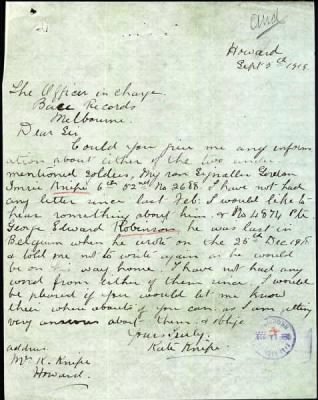 Howard
Sept 5th 1919
The Officer in charge
Base Records
Melbourne.
Dear Sir
Could you give me any inform
ation about either of the two under
mentioned soldiers, My son Signaller Gordon
Imrie Knipe 6th 52nd No 2688. I have not had
any letter since last Feb: I would like to
hear something about him. & No 4874 Pte
George Edward Robinson, he was last in
Belgium when he wrote on the 25th Dec. 1918
& told me not to write again as he would
be on his way home. I have not had any
word from either of them since. I would
be pleased if you would let me know
their where abouts if you can as I am getting
very anxious about them. & oblige
Yours truly.
Kate Knipe.
address
Mrs K. Knipe
Howard.